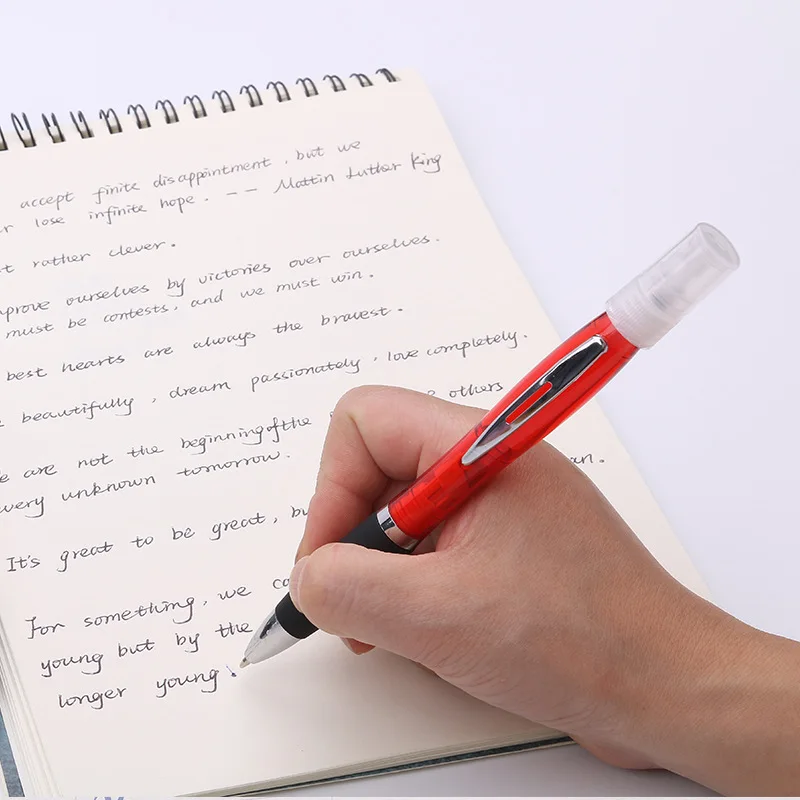 accept finite disappointment, but we
r lose infinite hope. -- Mattin Luther King
t rather clever.
mprove ourselves by victories over ourselves.
must be contests, and we must win.
best hearts are always the bravest.
beautifully, dream passionately, love completely.
e are not the beginning of the others
very unknown tomorrow. an.
It's great to be great, bu
For something, we ca
young but by the
longer young